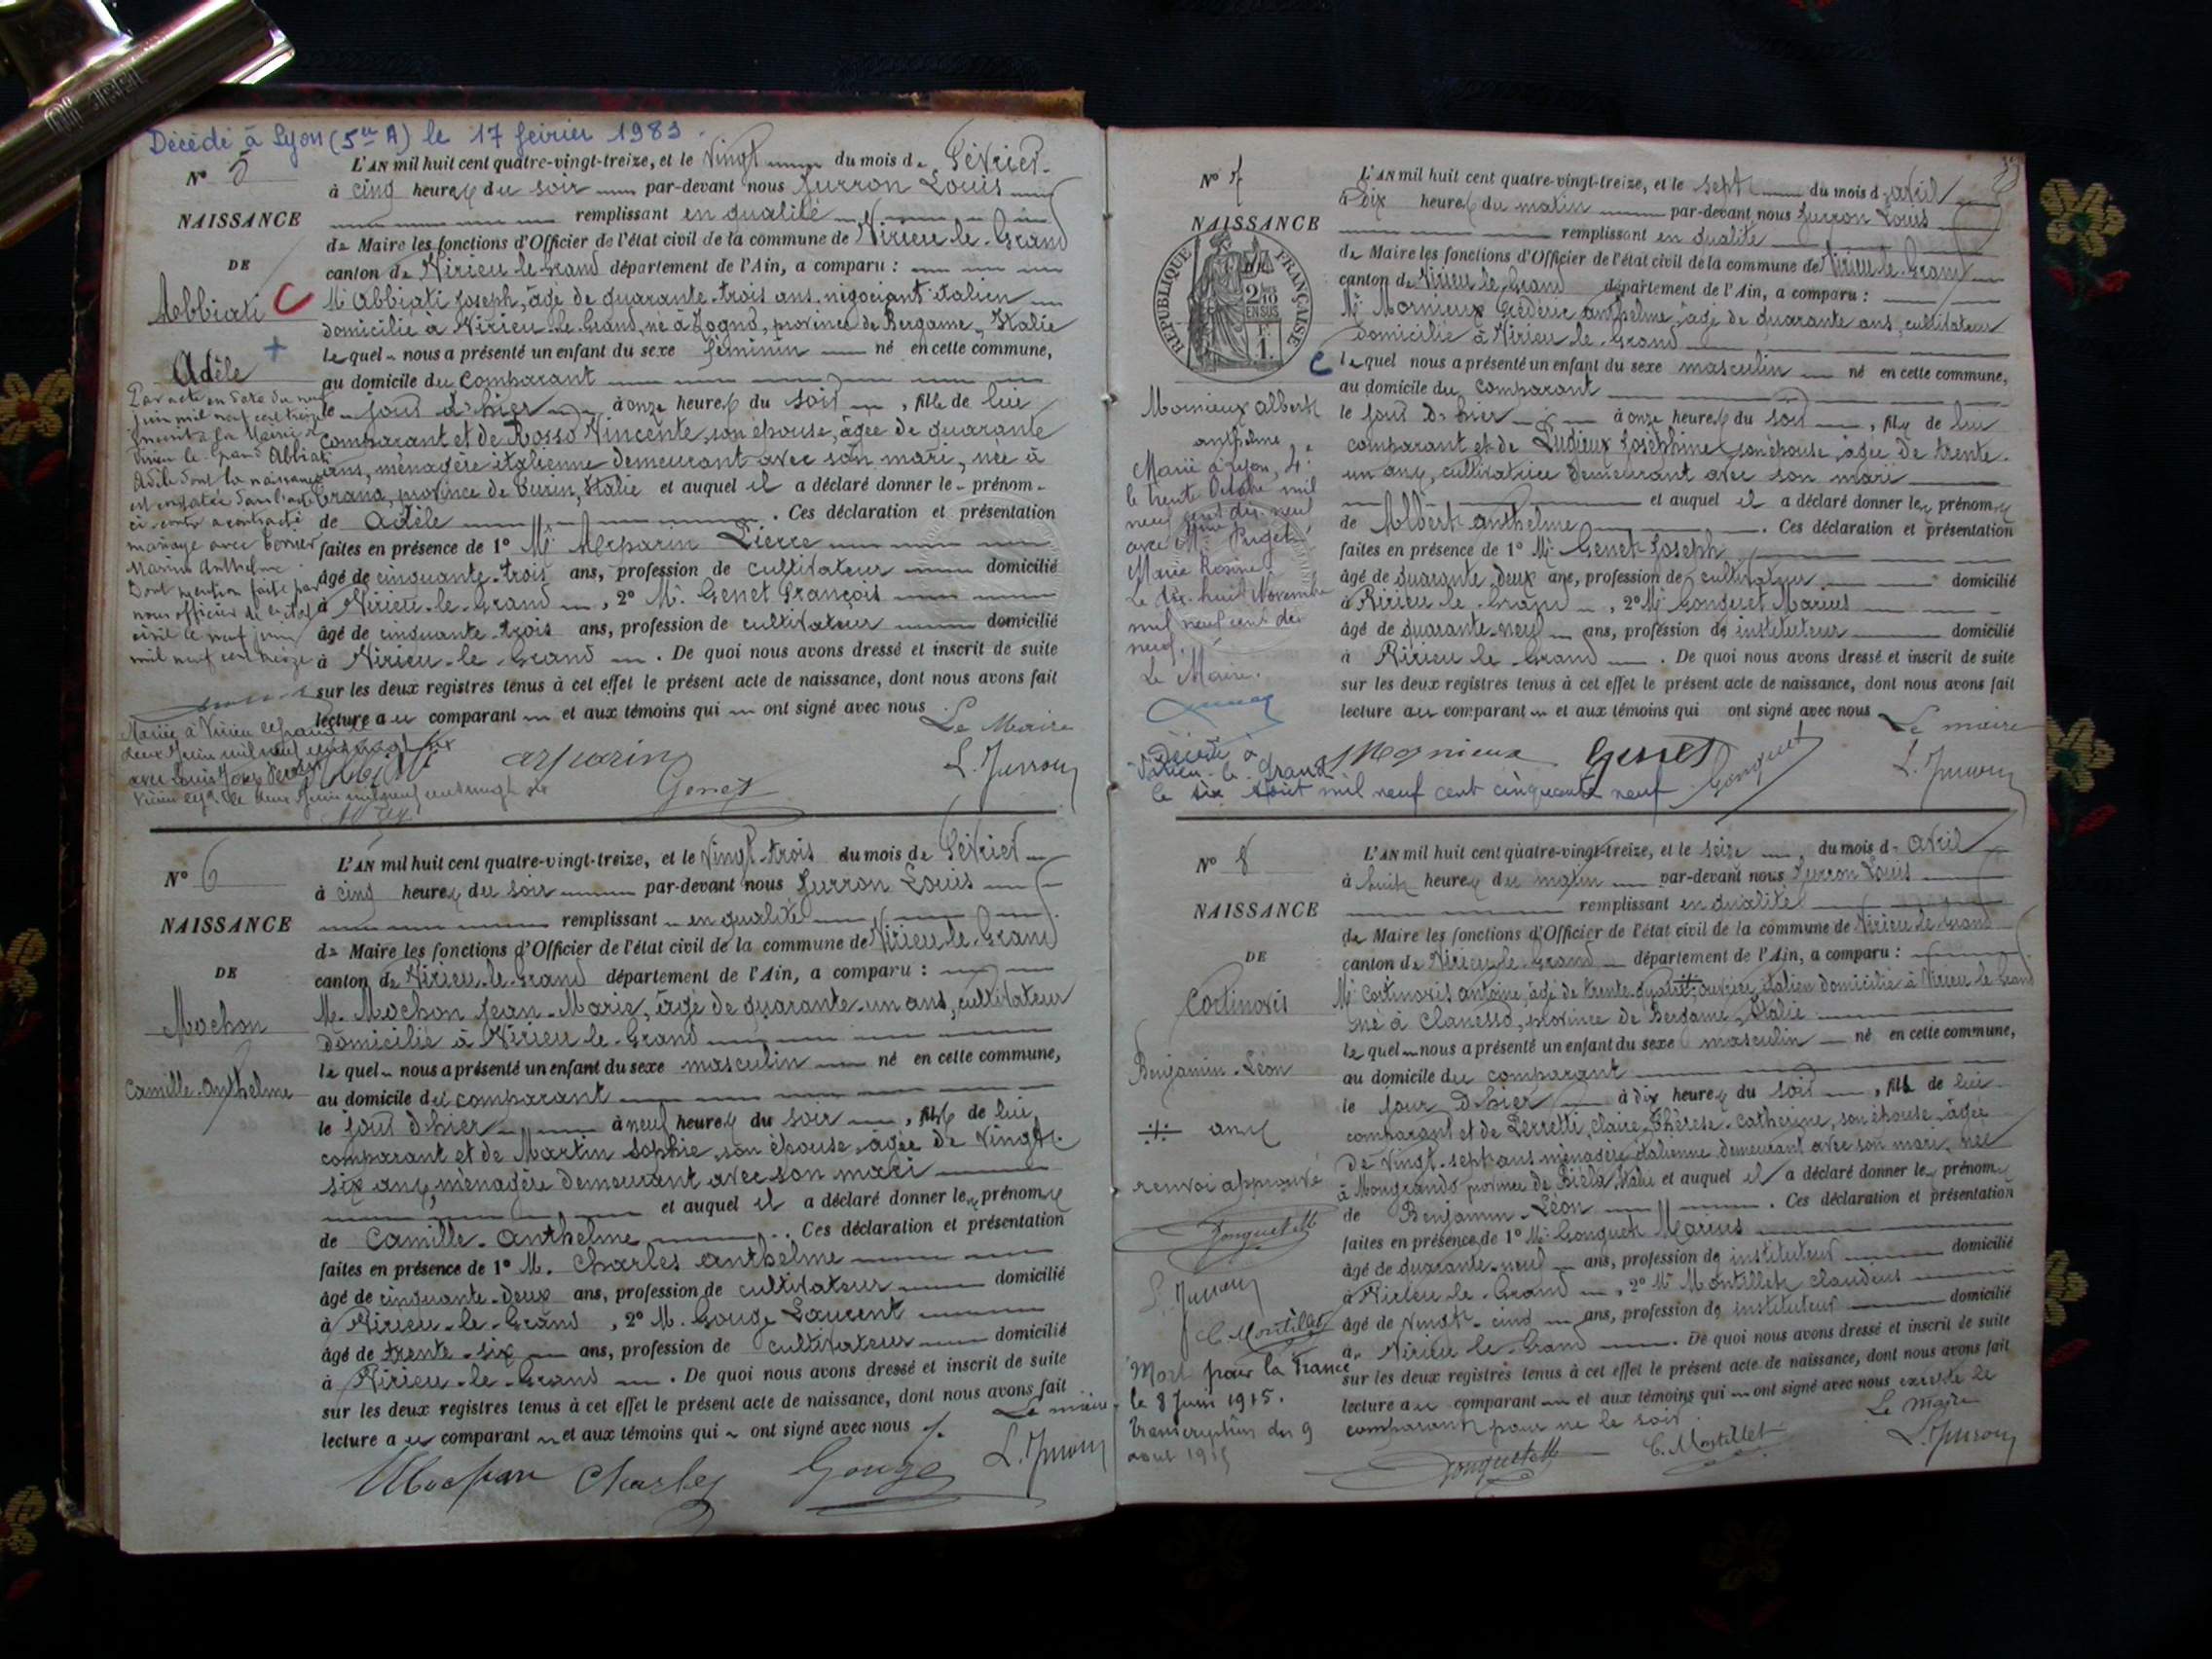 Décédé à Lyon (5e A) le 17 février 1983.
N° 5
NAISSANCE
DE
Abbiati
Adèle
L'AN mil huit cent quatre-vingt-treize, et le Vingt du mois de Février
à cinq heures du soir par-devant nous Jurron Louis
remplissant en qualité
de Maire les fonctions d'Officier de l'état civil de la commune de Virieu-le-Grand
canton de Virieu-le-Grand département de l'Ain, a comparu :
Mr Abbiati Joseph, âgé de quarante-trois ans, négociant italien
domicilié à Virieu-le-Grand, né à Zogno, province de Bergame, Italie
lequel nous a présenté un enfant du sexe féminin né en cette commune,
au domicile du comparant
le jour d'hier à onze heures du soir, fille de lui
comparant et de Rosso Vincente, son épouse, âgée de quarante
ans, ménagère italienne demeurant avec son mari, née à
province de Turin, Italie et auquel il a déclaré donner le prénom
de Adèle. Ces déclaration et présentation
faites en présence de 1° Mr Pierre
âgé de cinquante-trois ans, profession de cultivateur domicilié
à Virieu-le-Grand, 2° Mr Genet François
âgé de cinquante-trois ans, profession de cultivateur domicilié
à Virieu-le-Grand. De quoi nous avons dressé et inscrit de suite
sur les deux registres tenus à cet effet le présent acte de naissance, dont nous avons fait
lecture au comparant et aux témoins qui ont signé avec nous
Le Maire
L. Jurron
Genet
Par acte en date du neuf
Juin mil neuf cent treize
inscrit à la Mairie de
Virieu le Grand Abbiati
Adèle dont la naissance
est constatée dans l'acte
ci-contre a contracté
mariage avec
Marius Anthelme
Dont mention faite par
nous officier de l'état
civil le neuf juin
mil neuf cent treize
Mariée à Virieu le Grand le
deux Juin mil neuf cent vingt six
avec Louis
N° 6
NAISSANCE
DE
Mochon
Camille-Anthelme
L'AN mil huit cent quatre-vingt-treize, et le Vingt-trois du mois de Février
à cinq heures du soir par-devant nous Jurron Louis
remplissant en qualité
de Maire les fonctions d'Officier de l'état civil de la commune de Virieu-le-Grand
canton de Virieu-le-Grand département de l'Ain, a comparu :
M. Mochon Jean-Marie, âgé de quarante-un ans, cultivateur
domicilié à Virieu-le-Grand
lequel nous a présenté un enfant du sexe masculin né en cette commune,
au domicile du comparant
le jour d'hier à neuf heures du soir, fils de lui
comparant et de Martin Sophie, son épouse, âgée de vingt-
six ans, ménagère demeurant avec son mari
et auquel il a déclaré donner les prénoms
de Camille-Anthelme. Ces déclaration et présentation
faites en présence de 1° M. Charles Anthelme
âgé de cinquante-deux ans, profession de cultivateur domicilié
à Virieu-le-Grand, 2° M. Gouge Laurent
âgé de trente-six ans, profession de cultivateur domicilié
à Virieu-le-Grand. De quoi nous avons dressé et inscrit de suite
sur les deux registres tenus à cet effet le présent acte de naissance, dont nous avons fait
lecture au comparant et aux témoins qui ont signé avec nous
Le maire
Mochon Charles Gouge L. Jurron
N° 7
NAISSANCE
RÉPUBLIQUE FRANÇAISE
2/10 EN SUS
1F.
Mornieux Albert
anthelme
L'AN mil huit cent quatre-vingt-treize, et le sept du mois d'avril
à dix heures du matin par-devant nous Jurron Louis
remplissant en qualité
de Maire les fonctions d'Officier de l'état civil de la commune de Virieu-le-Grand
canton de Virieu-le-Grand département de l'Ain, a comparu :
Mr Mornieux Frédéric anthelme, âgé de quarante ans, cultivateur
domicilié à Virieu-le-Grand
lequel nous a présenté un enfant du sexe masculin né en cette commune,
au domicile du comparant
le jour d'hier à onze heures du soir, fils de lui
comparant et de Ludieux Joséphine, son épouse, âgée de trente-
un ans, cultivatrice demeurant avec son mari
et auquel il a déclaré donner les prénoms
de Albert anthelme. Ces déclaration et présentation
faites en présence de 1° Mr Genet Joseph
âgé de quarante-deux ans, profession de cultivateur domicilié
à Virieu-le-Grand, 2° Mr Gonguet Marius
âgé de quarante-neuf ans, profession de instituteur domicilié
à Virieu-le-Grand. De quoi nous avons dressé et inscrit de suite
sur les deux registres tenus à cet effet le présent acte de naissance, dont nous avons fait
lecture au comparant et aux témoins qui ont signé avec nous
Le maire
Mornieux Genet Gonguet L. Jurron
Marié à Lyon, 4e
le trente Octobre mil
neuf cent dix neuf
avec Mlle Puget
Marie Rosine.
Le dix-huit Novembre
mil neuf cent dix
neuf.
Le Maire.
Décédé à
Virieu-le-Grand
le six Août mil neuf cent cinquante neuf
N° 8
NAISSANCE
DE
Cortinovis
Benjamin-Léon
L'AN mil huit cent quatre-vingt-treize, et le seize du mois d'avril
à huit heures du matin par-devant nous Jurron Louis
remplissant en qualité
de Maire les fonctions d'Officier de l'état civil de la commune de Virieu-le-Grand
canton de Virieu-le-Grand département de l'Ain, a comparu :
Mr Cortinovis Antoine, âgé de trente-quatre ouvrier italien domicilié à Virieu-le-Grand
né à Clanesso, province de Bergame, Italie
lequel nous a présenté un enfant du sexe masculin né en cette commune,
au domicile du comparant
le jour d'hier à dix heures du soir, fils de lui
comparant et de Perretti, Claire-Thérèse-Catherine, son épouse, âgée
de vingt-sept ans ménagère italienne demeurant avec son mari, née
à Mongrando province de Biela, Italie et auquel il a déclaré donner les prénoms
de Benjamin-Léon. Ces déclaration et présentation
faites en présence de 1° Mr Gonguet Marius
âgé de quarante-neuf ans, profession de instituteur domicilié
à Virieu-le-Grand, 2° Mr Montillet Claudius
âgé de vingt-cinq ans, profession de instituteur domicilié
à Virieu-le-Grand. De quoi nous avons dressé et inscrit de suite
sur les deux registres tenus à cet effet le présent acte de naissance, dont nous avons fait
lecture au comparant et aux témoins qui ont signé avec nous excepté le
comparant pour ne le savoir.
Le maire
Gonguet C. Montillet L. Jurron
ans
renvoi approuvé
Gonguet
L. Jurron
C. Montillet
Mort pour la France
le 8 Juin 1915.
Transcription du 9
août 1915